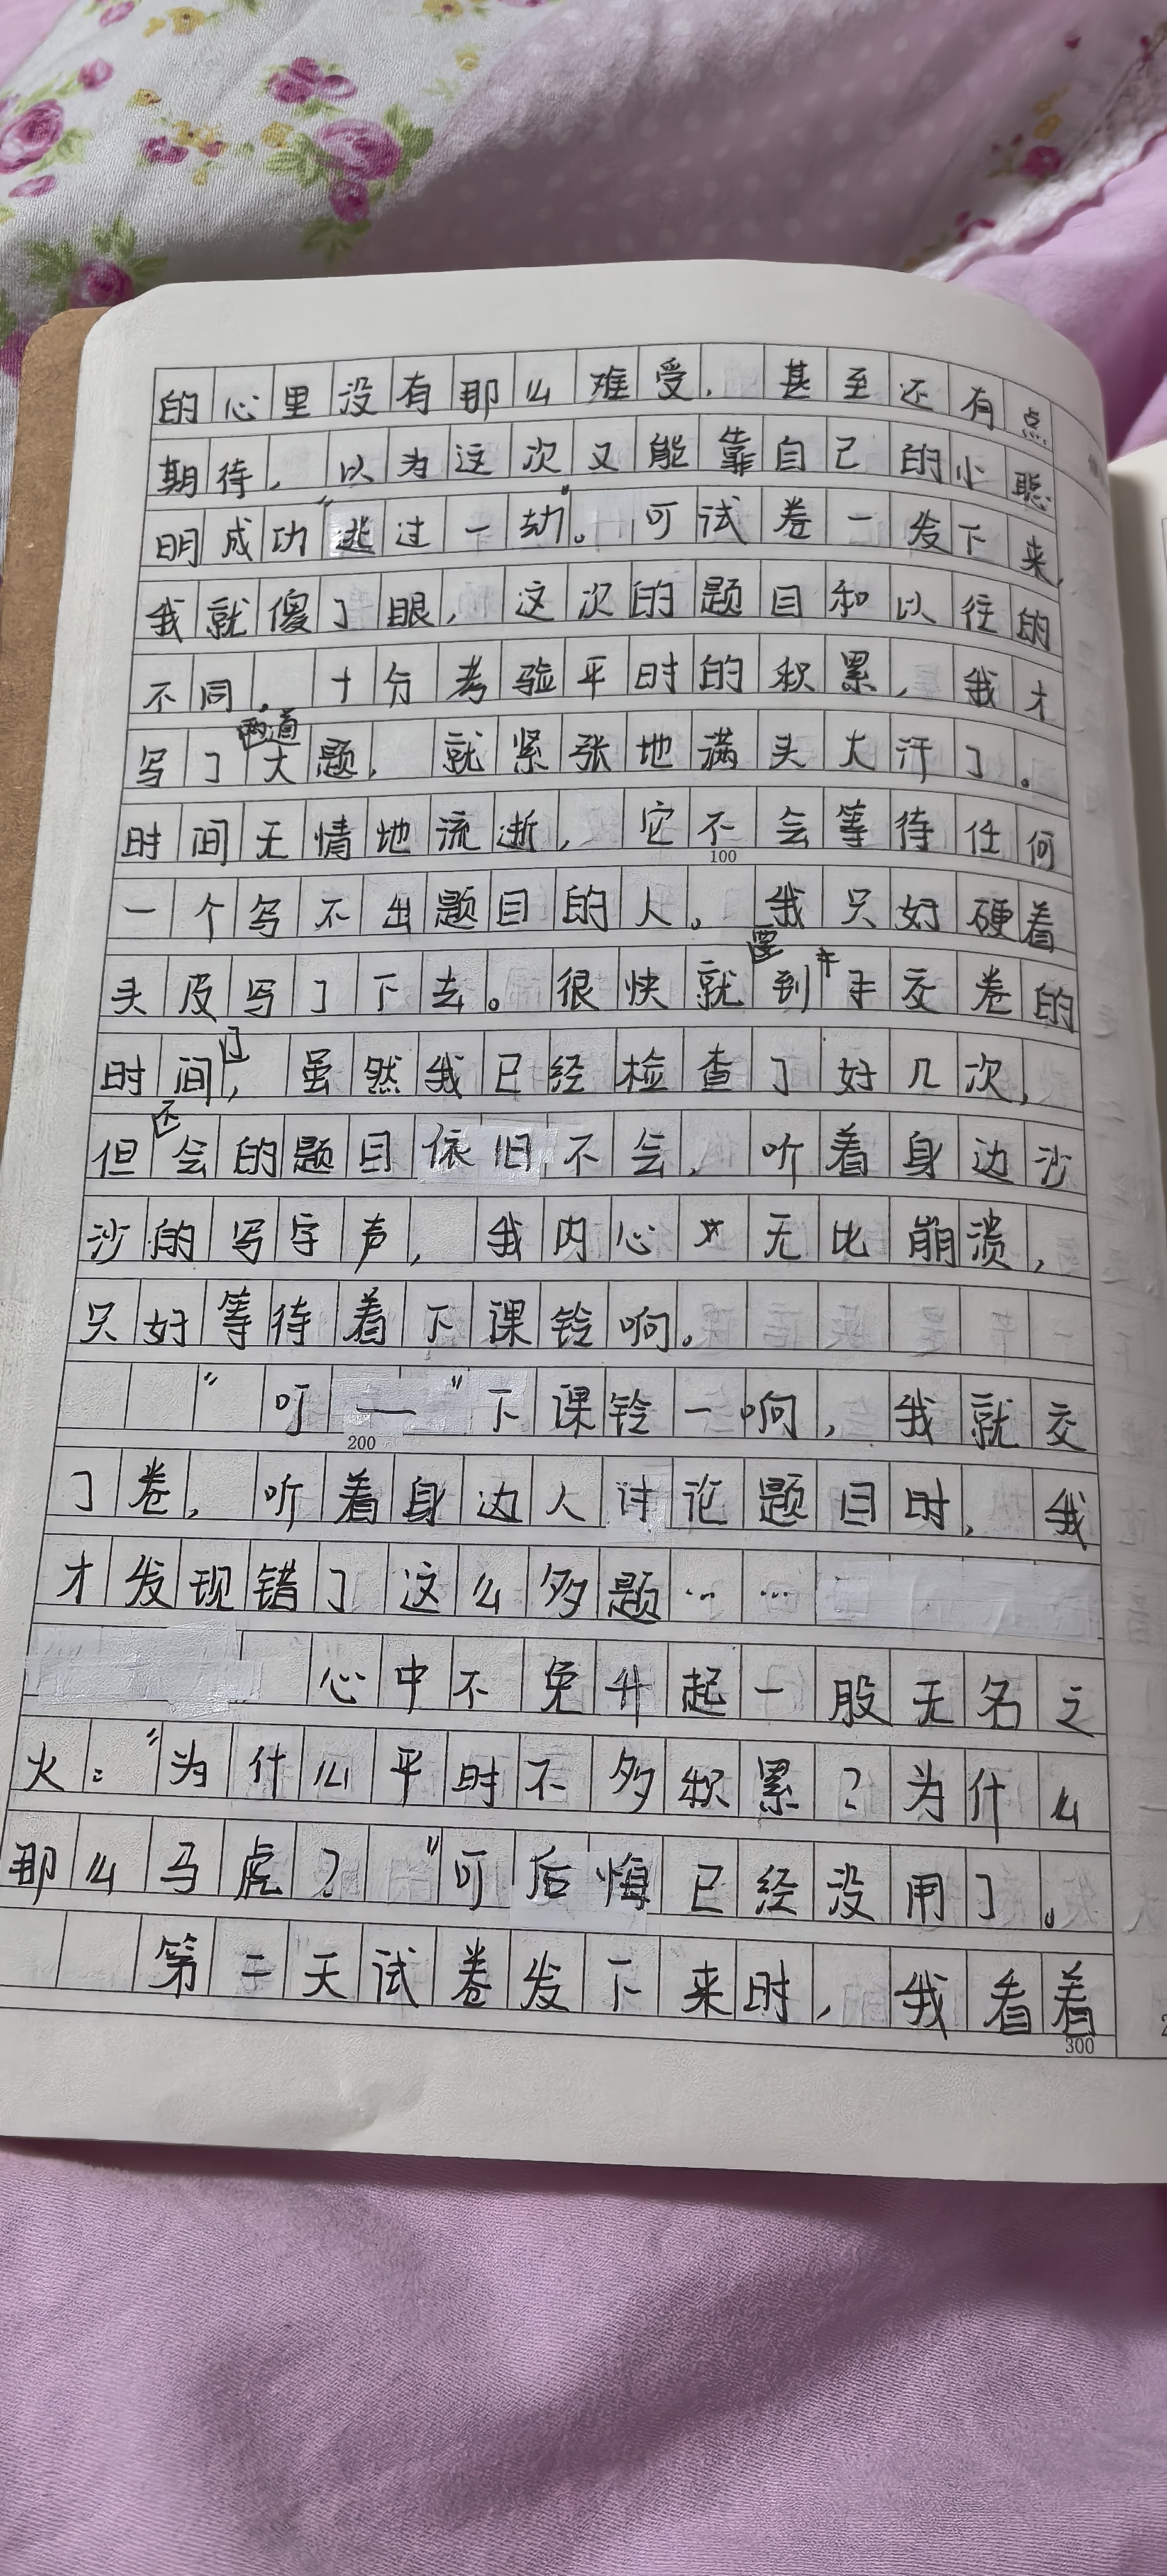 的心里没有那么难受,甚至还有点
期待,以为这次又能靠自己的小聪
明成功“逃过一劫”。可试卷一发下来,
我就傻了眼,这次的题目和以往的
不同,十分考验平时的积累,我才
写了两道大题,就紧张地满头大汗了。
时间无情地流逝,它不会等待任何
100
一个写不出题目的人。我只好硬着
头皮写了下去。很快就要到交卷的
时间了,虽然我已经检查了好几次,
但不会的题目依旧不会,听着身边沙
沙的写字声,我内心无比崩溃,
只好等待着下课铃响。
“叮——”下课铃一响,我就交
200
了卷,听着身边人讨论题目时,我
才发现错了这么多题……
心中不免升起一股无名之
火:“为什么平时不多积累?为什么
那么马虎?”可后悔已经没用了。
第二天试卷发下来时,我看着
300